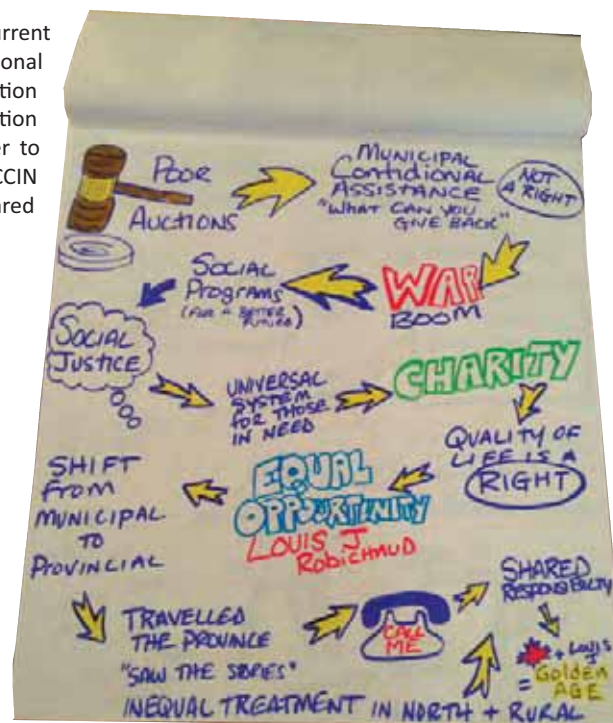 urrent
ional
tion
tion
er to
CCIN
ared
POOR
AUCTIONS
MUNICIPAL
CONTIDIONAL
ASSISTANCE
"WHAT CAN YOU
GIVE BACK"
NOT
A RIGHT
WAR
BOOM
SOCIAL
PROGRAMS
(FOR A BETTER
FUTURE)
SOCIAL
JUSTICE
UNIVERSAL
SYSTEM
FOR THOSE
IN NEED
CHARITY
QUALITY OF
LIFE IS A
RIGHT
EQUAL
OPPOURTUNITY
LOUIS J
ROBICHAUD
SHIFT
FROM
MUNICIPAL
TO
PROVINCIAL
TRAVELLED
THE PROVINCE
"SAW THE STORIES"
INEQUAL TREATMENT IN NORTH + RURAL
CALL
ME
SHARED
RESPONSIBILTY
+ LOUIS
J
= Golden
AGE